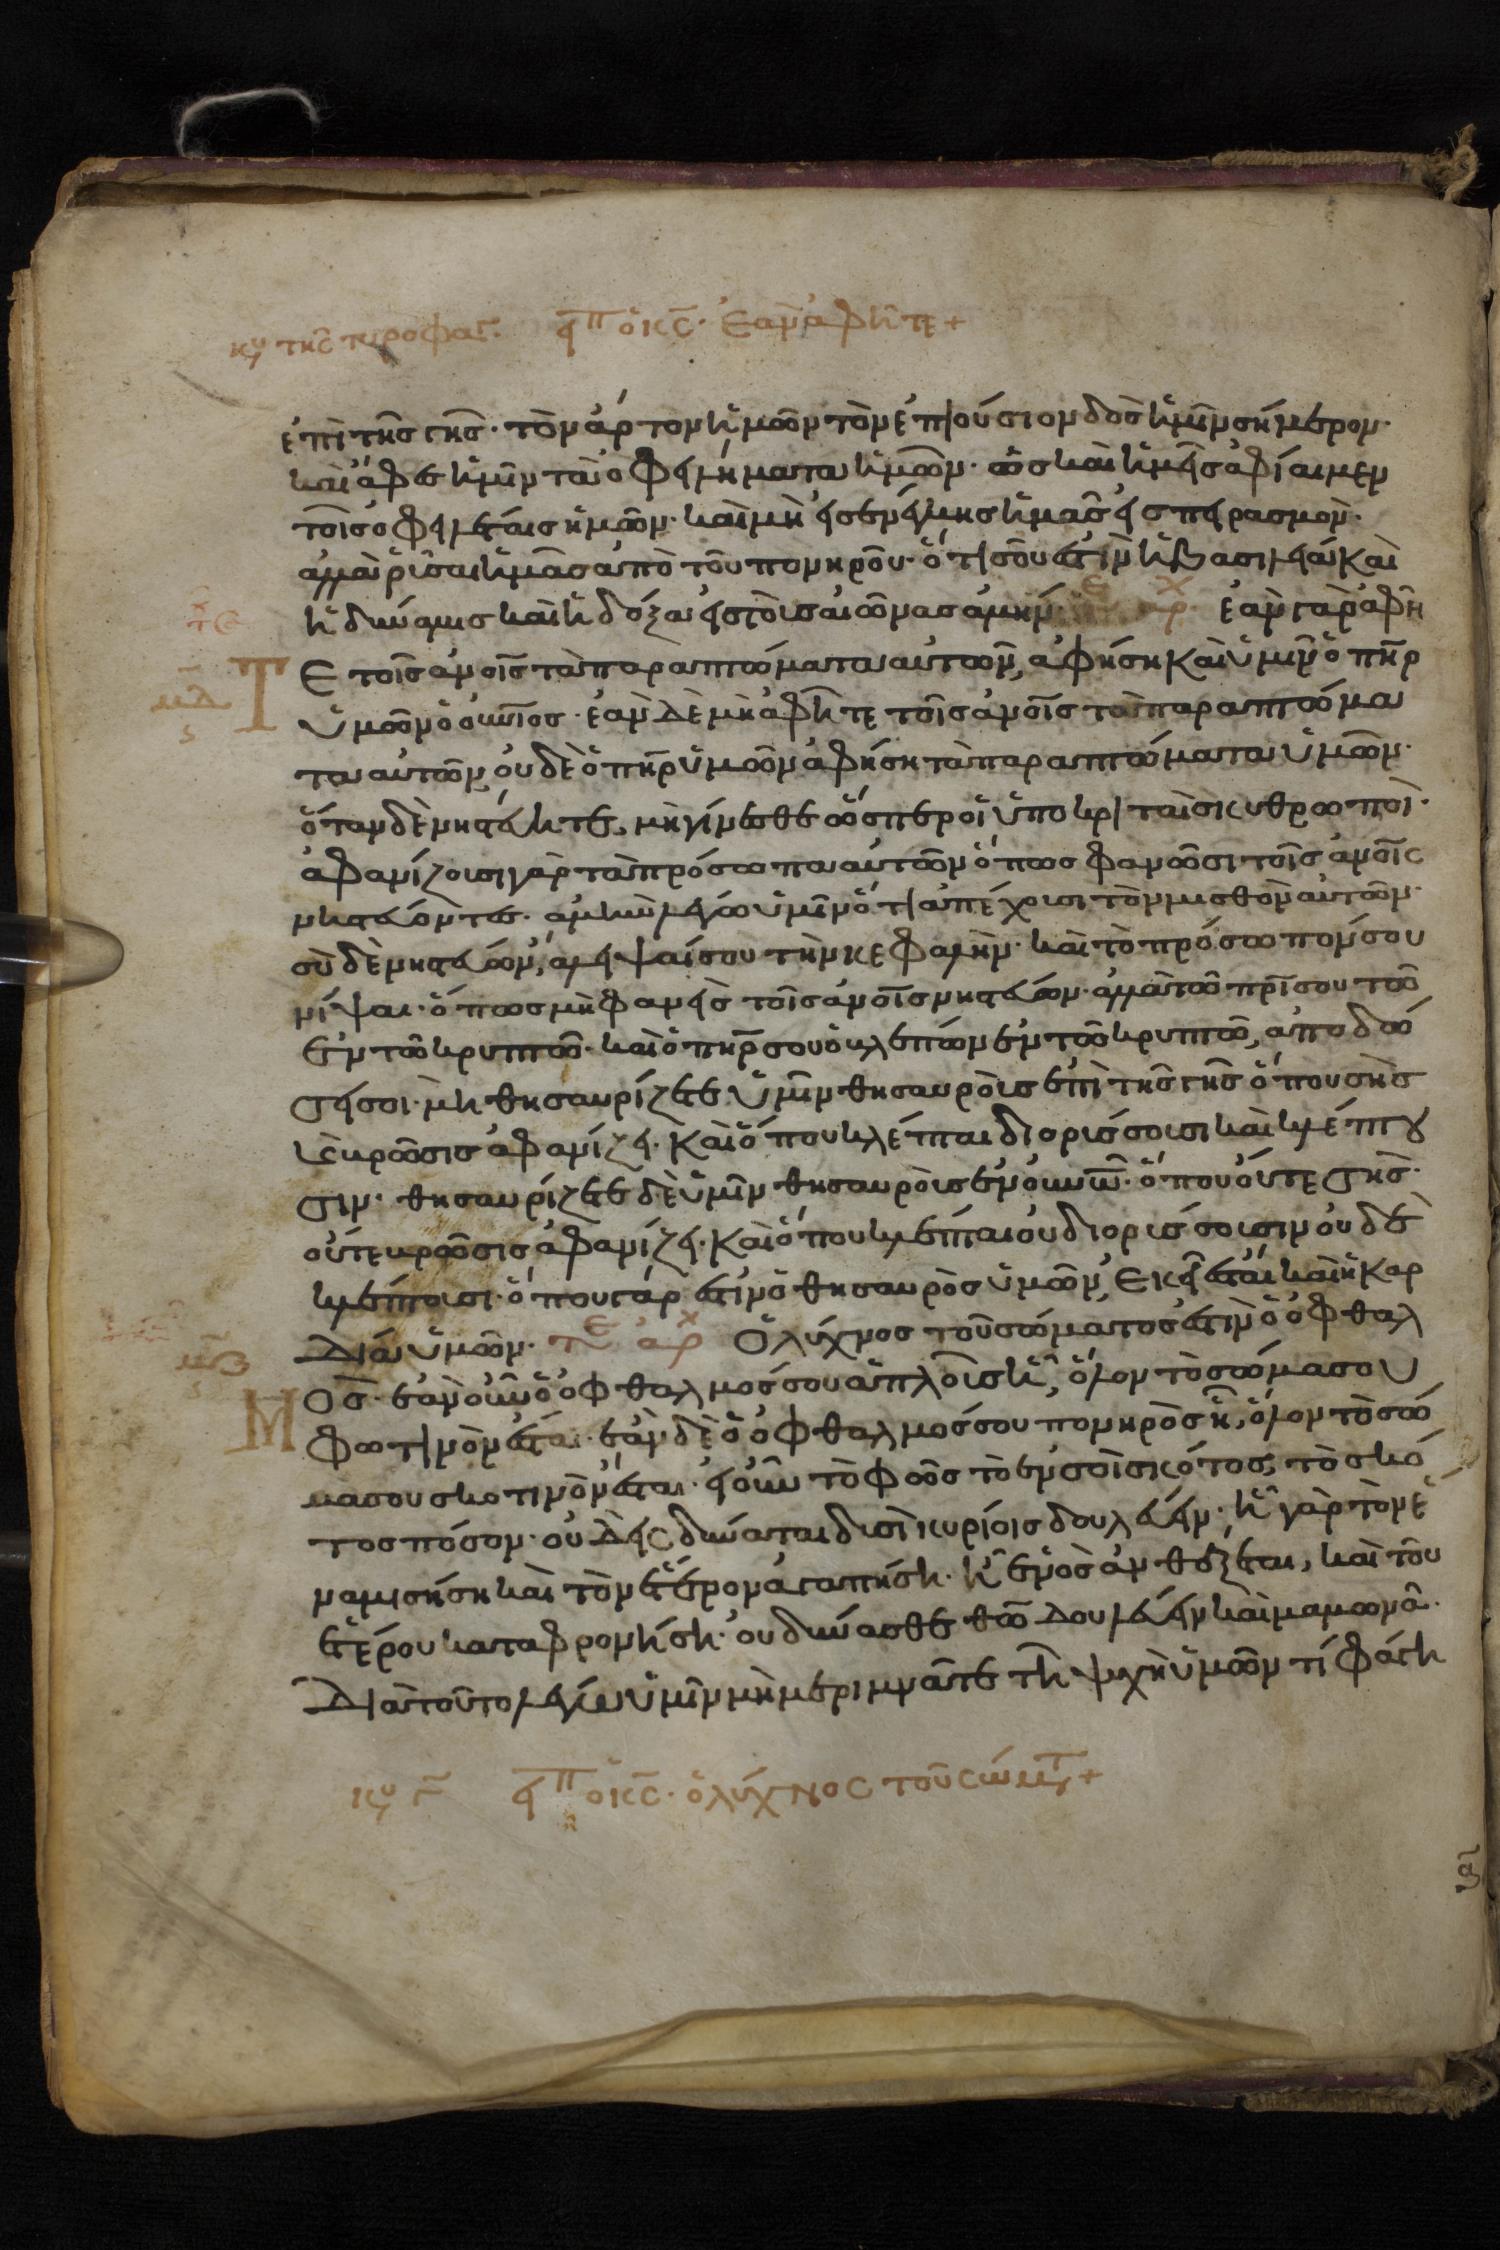 κυ τῆς τυροφαγ. εἶπ ὁ κς̅· ἐὰν ἀφῆτε +
ἐπὶ τῆς γῆς· τὸν ἄρτον ἡμῶν τὸν ἐπιούσιον δὸς ἡμῖν σήμερον·
καὶ ἄφες ἡμῖν τὰ ὀφειλήματα ἡμῶν· ὡς καὶ ἡμεῖς ἀφίαμεν
τοῖς ὀφειλέταις ἡμῶν· καὶ μὴ εἰσενέγκης ἡμᾶς εἰς πειρασμὸν·
ἀλλὰ ῥῦσαι ἡμᾶς ἀπὸ τοῦ πονηροῦ· ὅτι σοῦ ἐστὶν ἡ βασιλεία καὶ
ἡ δύναμις καὶ ἡ δόξα εἰς τοὺς αἰῶνας ἀμήν· ἀρχ ἐὰν γὰρ ἀφῆ
Τε τοῖς ἀνοῖς τὰ παραπτώματα αὐτῶν, ἀφήση καὶ ὑμῖν ὁ πηρ
ὑμῶν ὁ οὐνιος· ἐὰν δὲ μὴ ἀφῆτε τοῖς ἀνοῖς τὰ παραπτώμα
τα αὐτῶν, οὐδὲ ὁ πηρ ὑμῶν ἀφήση τὰ παραπτώματα ὑμῶν·
ὅταν δὲ νηστεύητε, μὴ γίνεσθε ὥσπερ οἱ ὑποκριταὶ σκυθρωποὶ·
ἀφανίζουσι γὰρ τὰ πρόσωπα αὐτῶν ὅπως φανῶσι τοῖς ἀνοῖς
νηστεύοντες· ἀμὴν λέγω ὑμῖν ὅτι ἀπέχουσι τὸν μισθὸν αὐτῶν·
σὺ δὲ νηστεύων, ἄλειψαί σου τὴν κεφαλὴν· καὶ τὸ πρόσωπόν σου
νίψαι· ὅπως μὴ φανεὶς τοῖς ἀνοῖς νηστεύων· ἀλλὰ τῶ πρί σου τῶ
ἐν τῶ κρυπτῶ· καὶ ὁ πηρ σου ὁ βλέπων ἐν τῶ κρυπτῶ, ἀποδώ
σει σοι· μὴ θησαυρίζετε ὑμῖν θησαυροὺς ἐπὶ τῆς γῆς ὅπου σὴς
καὶ βρῶσις ἀφανίζει· καὶ ὅπου κλέπται διορύσσουσι καὶ κλέπτου
σιν· θησαυρίζετε δὲ ὑμῖν θησαυροὺς ἐν οὐνω· ὅπου οὔτε σὴς·
οὔτε βρῶσις ἀφανίζει· καὶ ὅπου κλέπται οὐ διορύσσουσιν οὐδὲ
κλέπτουσι· ὅπου γάρ ἐστιν ὁ θησαυρὸς ὑμῶν, ἐκεῖ ἔσται καὶ ἡ καρ
δία ὑμῶν· τε ἀρχ Ὁ λύχνος τοῦ σώματος ἐστὶν ὁ ὀφθαλ
Μος· ἐὰν οὖν ὁ ὀφθαλμός σου ἁπλοῦς ἦ, ὅλον τὸ σῶμα σου
φωτινὸν ἔσται· ἐὰν δὲ ὁ ὀφθαλμός σου πονηρὸς ἦ, ὅλον τὸ σῶ
μα σου σκοτινὸν ἔσται· εἰ οὖν τὸ φῶς τὸ ἐν σοὶ σκότος, τὸ σκό
τος πόσον· οὐδεὶς δύναται δυσὶ κυρίοις δουλεύειν· ἢ γὰρ τὸν ἕ
να μισήση καὶ τὸν ἕτερον ἀγαπήση· ἢ ἑνὸς ἀνθέξεται, καὶ τοῦ
ἑτέρου καταφρονήση· οὐ δύνασθε θῶ δουλεύειν καὶ μαμωνᾶ·
Διὰ τοῦτο λέγω ὑμῖν μὴ μεριμνᾶτε τῆ ψυχῆ ὑμῶν τί φάγη
κυ γ̅ εἶπ ὁ κς̅· ὁ λύχνος τοῦ σώματ +